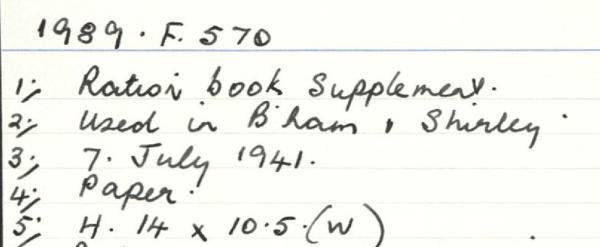 1989. F. 570
1; Ration book Supplement.
2; Used in B'ham, Shirley.
3; 7. July 1941.
4; Paper.
5; H. 14 x 10.5. (W)